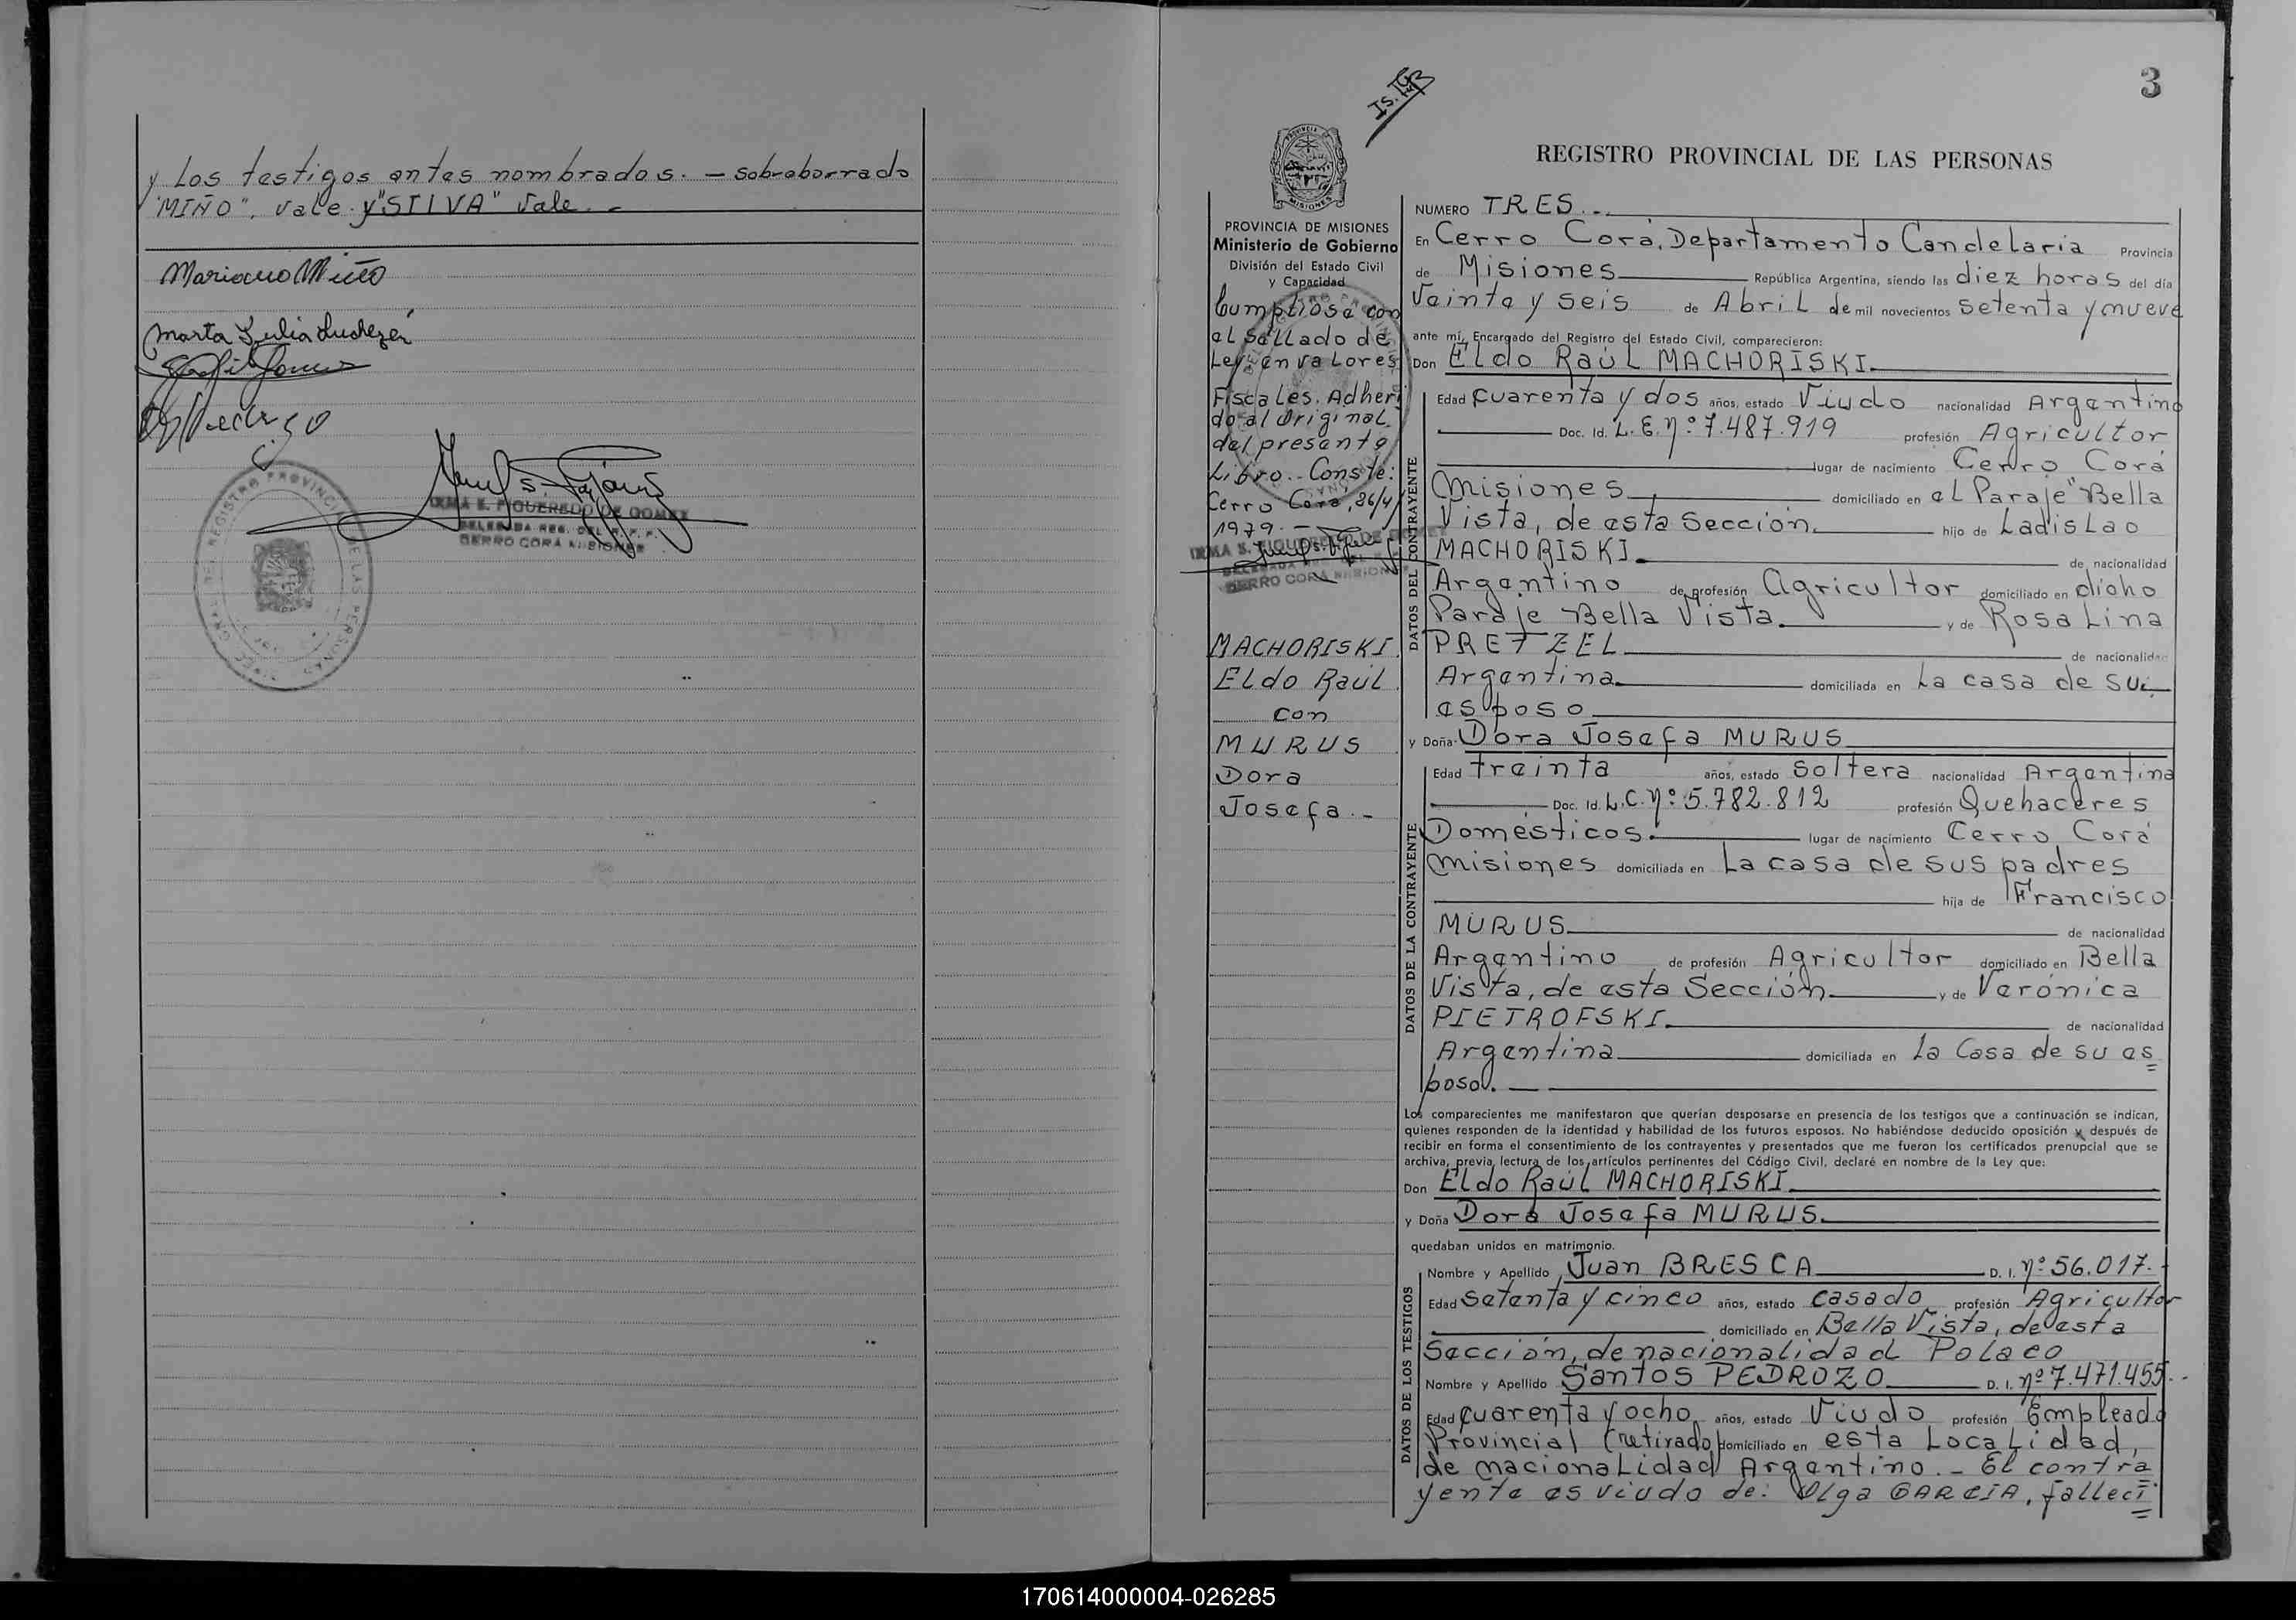 y Los testigos antes nombrados. — sobreborrado
"MIÑO", vale y "SILVA" vale. —
Mariano Miño
Marta Julia
IRMA S. FIGUEREDO DE GOMEZ
DELEGADA REG. DEL R. P. P.
CERRO CORA MISIONES
REGISTRO PROVINCIAL DE LAS PERSONAS
3
REGISTRO PROVINCIAL DE LAS PERSONAS
PROVINCIA DE MISIONES
Ministerio de Gobierno
División del Estado Civil
y Capacidad
Cumplióse con
el Sellado de
Ley en valores
Fiscales. Adheri
do al Original
del presente
Libro. Conste:
Cerro Corá, 26/4/
1979. —
IRMA S. FIGUEREDO DE GOMEZ
DELEGADA
CERRO CORA MISIONES
MACHORISKI
Eldo Raúl
con
MURUS
Dora
Josefa. -
NUMERO TRES. . —
En Cerro Corá, Departamento Candelaria Provincia
de Misiones República Argentina, siendo las diez horas del día
Veinte y seis de Abril de mil novecientos setenta y nueve
ante mí, Encargado del Registro del Estado Civil, comparecieron:
Don Eldo Raúl MACHORISKI.
Edad Cuarenta y dos años, estado Viudo nacionalidad Argentino
Doc. Id. L. E. Nº 7.487.919 profesión Agricultor
lugar de nacimiento Cerro Corá
Misiones domiciliado en el Paraje "Bella
Vista, de esta Sección. hijo de Ladislao
MACHORISKI. de nacionalidad
Argentino de profesión Agricultor domiciliado en dicho
Paraje Bella Vista. y de Rosa Lina
PRETZEL de nacionalidad
Argentina. domiciliada en La casa de su
esposo
y Doña Dora Josefa MURUS
Edad treinta años, estado Soltera nacionalidad Argentina
Doc. Id. L.C. Nº 5.782.812 profesión Quehaceres
Domésticos. lugar de nacimiento Cerro Corá
Misiones domiciliada en La casa de sus padres
hija de Francisco
MURUS de nacionalidad
Argentino de profesión Agricultor domiciliado en Bella
Vista, de esta Sección y de Verónica
PIETROFSKI. de nacionalidad
Argentina domiciliada en La Casa de su es
poso. —
Los comparecientes me manifestaron que querían desposarse en presencia de los testigos que a continuación se indican,
quienes responden de la identidad y habilidad de los futuros esposos. No habiéndose deducido oposición y después de
recibir en forma el consentimiento de los contrayentes y presentados que me fueron los certificados prenupcial que se
archiva, previa lectura de los artículos pertinentes del Código Civil, declaré en nombre de la Ley que:
Don Eldo Raúl MACHORISKI.
y Doña Dora Josefa MURUS.
quedaban unidos en matrimonio.
Nombre y Apellido Juan BRESCA D. I. Nº 56.017. -
Edad Setenta y cinco años, estado casado profesión Agricultor
domiciliado en Bella Vista, de esta
Sección, de nacionalidad Polaco
Nombre y Apellido Santos PEDROZO D. I. Nº 7.471.455. -
Edad Cuarenta y ocho años, estado Viudo profesión Empleado
Provincial (retirado) domiciliado en esta Localidad,
de nacionalidad Argentino. - El contra
yente es viudo de: Olga GARCIA, falleci
DATOS DEL CONTRAYENTE
DATOS DE LA CONTRAYENTE
DATOS DE LOS TESTIGOS
170614000004-026285